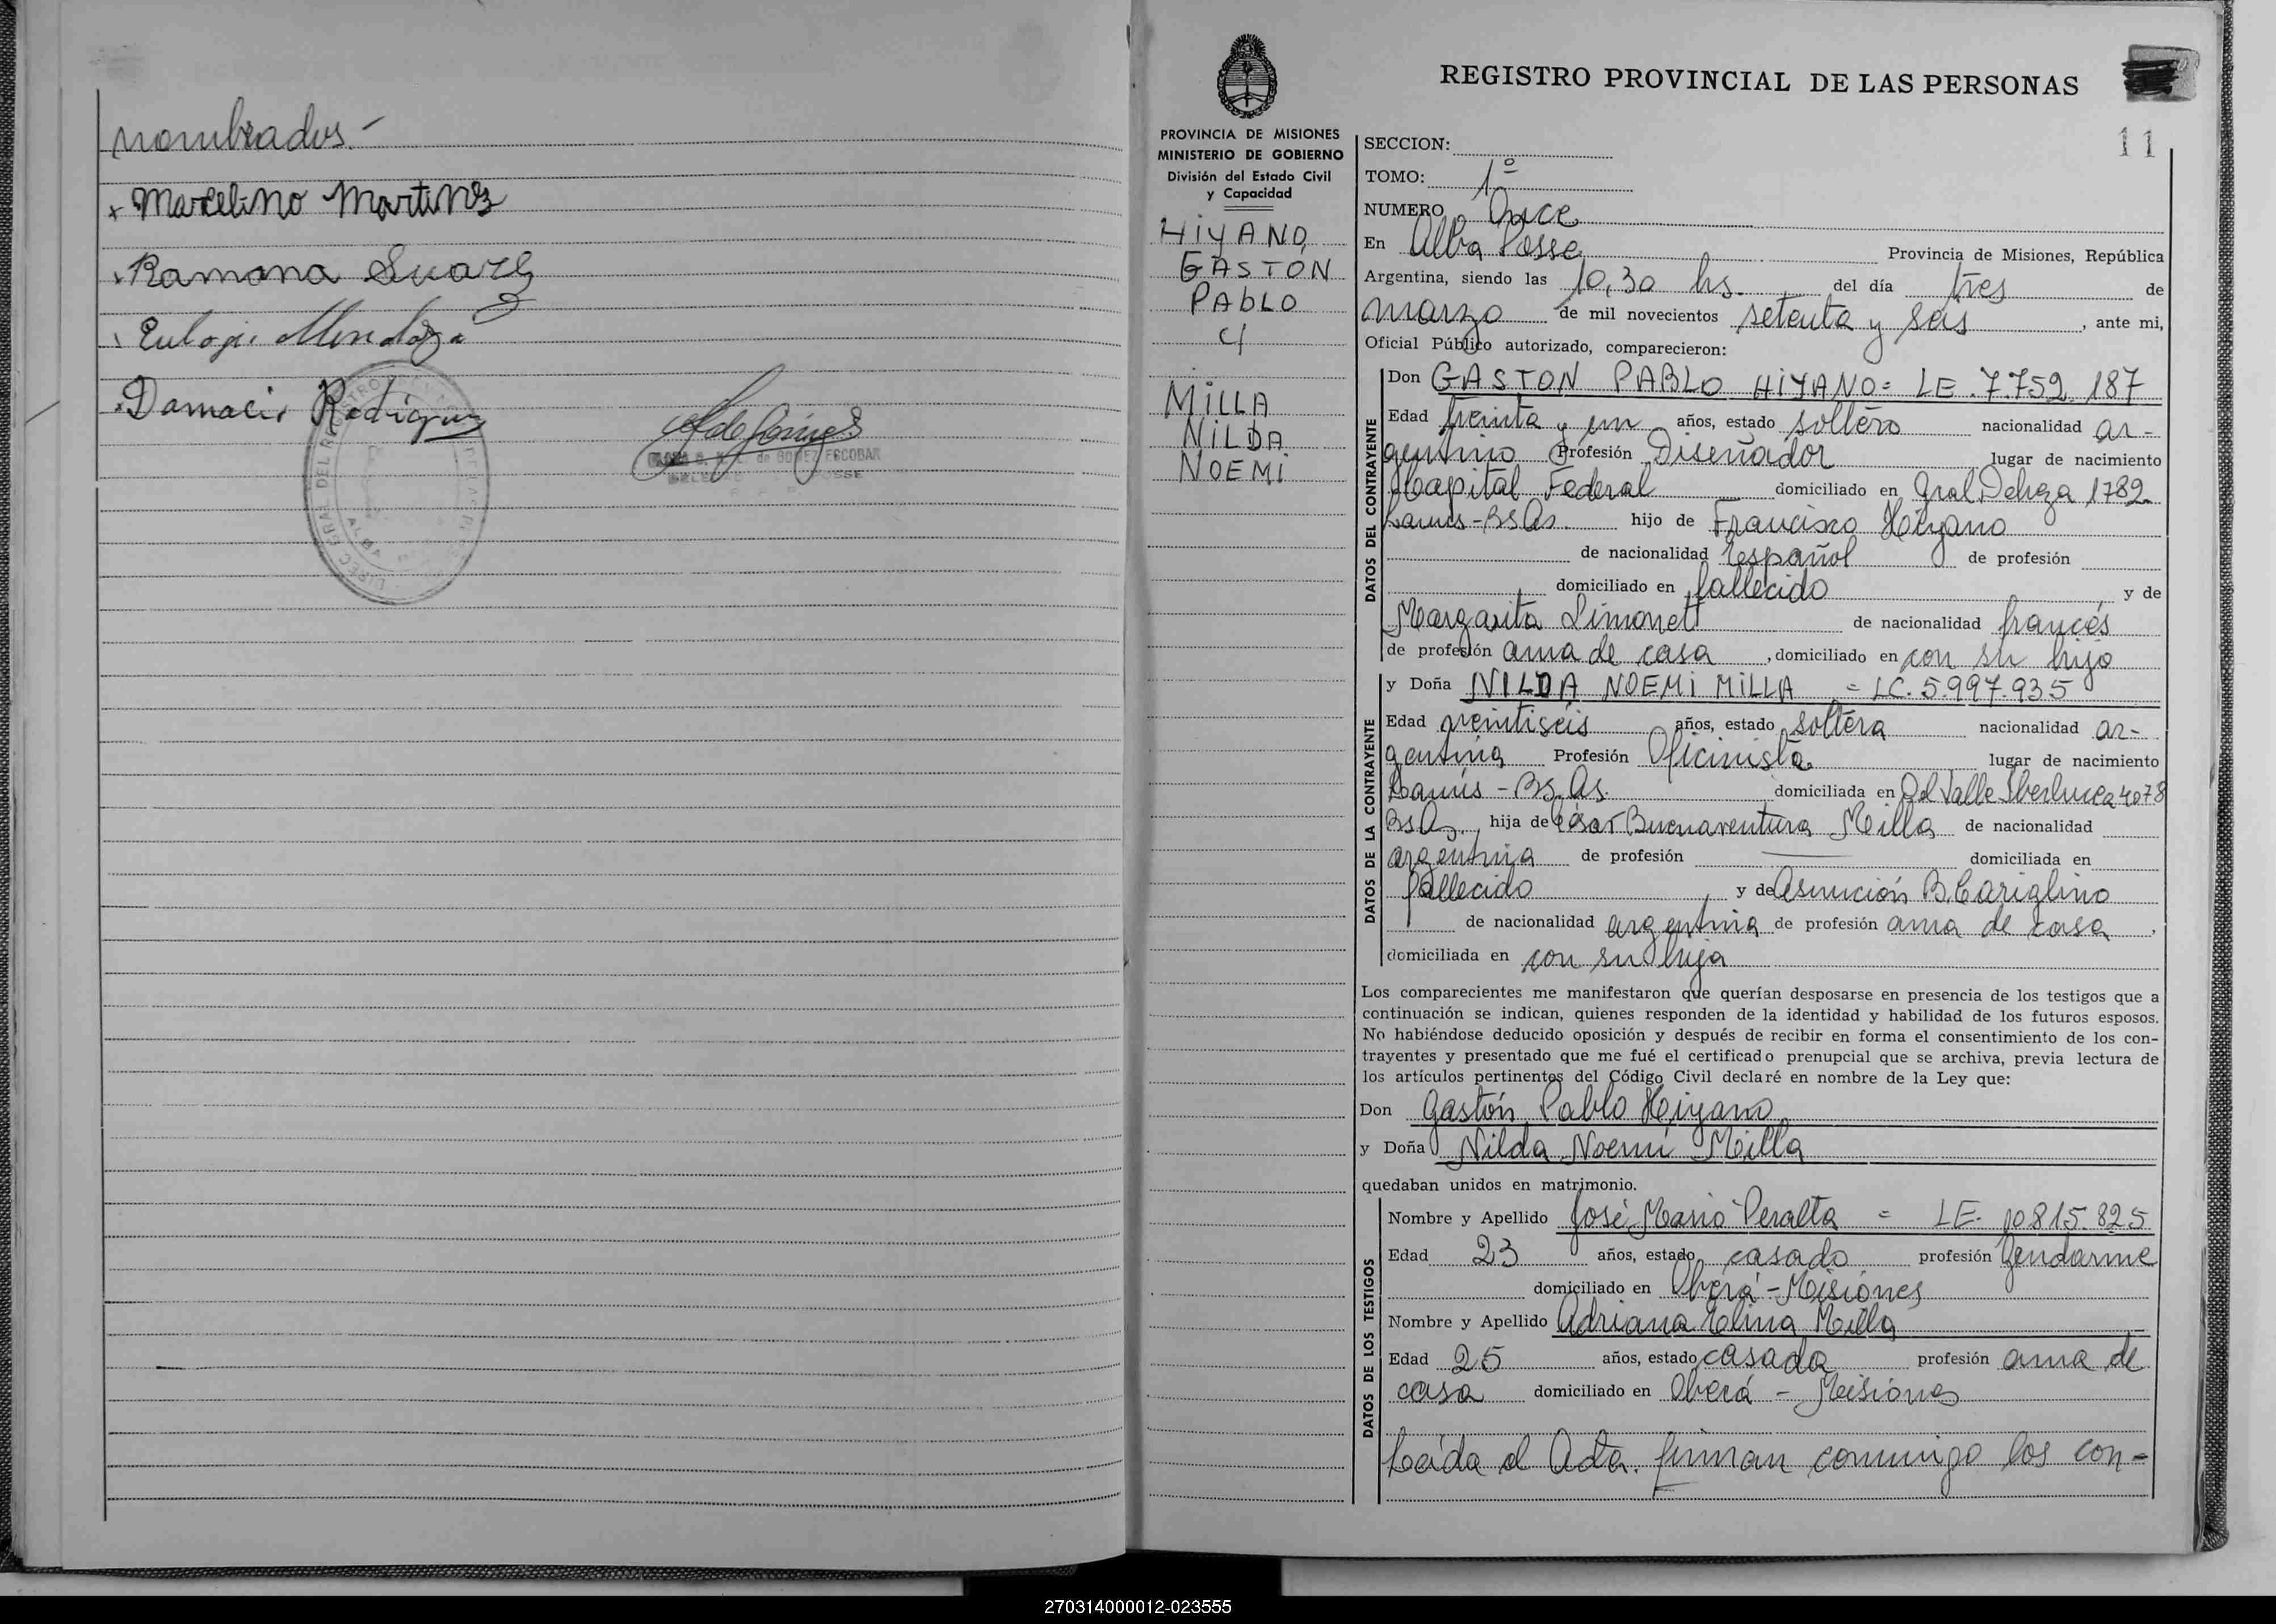 nombrados.-
x Marcelino Martinez
Ramona Suarez
Eulogio Mendoza
Damacio Rodriguez
DE GOMEZ ESCOBAR
REGISTRO PROVINCIAL DE LAS PERSONAS
11
PROVINCIA DE MISIONES
MINISTERIO DE GOBIERNO
División del Estado Civil
y Capacidad
HIYANO,
GASTÓN
PABLO
c/
MILLA
NILDA
NOEMI
SECCION:
TOMO: 1º
NUMERO Once
En Alba Posse Provincia de Misiones, República
Argentina, siendo las 10,30 hs. del día tres de
marzo de mil novecientos setenta y seis, ante mi,
Oficial Público autorizado, comparecieron:
DATOS DEL CONTRAYENTE
Don GASTON PABLO HIYANO = LE. 7.752.187
Edad treinta y un años, estado soltero nacionalidad ar-
gentino Profesión Diseñador lugar de nacimiento
Capital Federal domiciliado en Gral Deheza 1782
Lanus - Bs As. hijo de Francisco Hiyano
de nacionalidad Español de profesión
domiciliado en fallecido, y de
Margarita Simonett de nacionalidad francés
de profesión ama de casa, domiciliado en con su hijo
DATOS DE LA CONTRAYENTE
y Doña NILDA NOEMI MILLA = LC. 5.997.935
Edad veintiseis años, estado soltera nacionalidad ar-
gentina Profesión Oficinista lugar de nacimiento
Lanús - Bs. As. domiciliada en Del Valle Iberlucea 4078
Bs As., hija de César Buenaventura Milla de nacionalidad
argentina de profesión — domiciliada en
fallecido, y de Asunción B. Cariglino
de nacionalidad argentina de profesión ama de casa,
domiciliada en con su hija
Los comparecientes me manifestaron que querían desposarse en presencia de los testigos que a
continuación se indican, quienes responden de la identidad y habilidad de los futuros esposos.
No habiéndose deducido oposición y después de recibir en forma el consentimiento de los con-
trayentes y presentado que me fué el certificado prenupcial que se archiva, previa lectura de
los artículos pertinentes del Código Civil declaré en nombre de la Ley que:
Don Gastón Pablo Hiyano
y Doña Nilda Noemi Milla
quedaban unidos en matrimonio.
DATOS DE LOS TESTIGOS
Nombre y Apellido José Mario Peralta = LE. 10.815.825
Edad 23 años, estado casado profesión Gendarme
domiciliado en Oberá - Misiones
Nombre y Apellido Adriana Elina Milla
Edad 25 años, estado casada profesión ama de
casa domiciliado en Oberá - Misiones
Leída el Acta. firman conmigo los con-
270314000012-023555